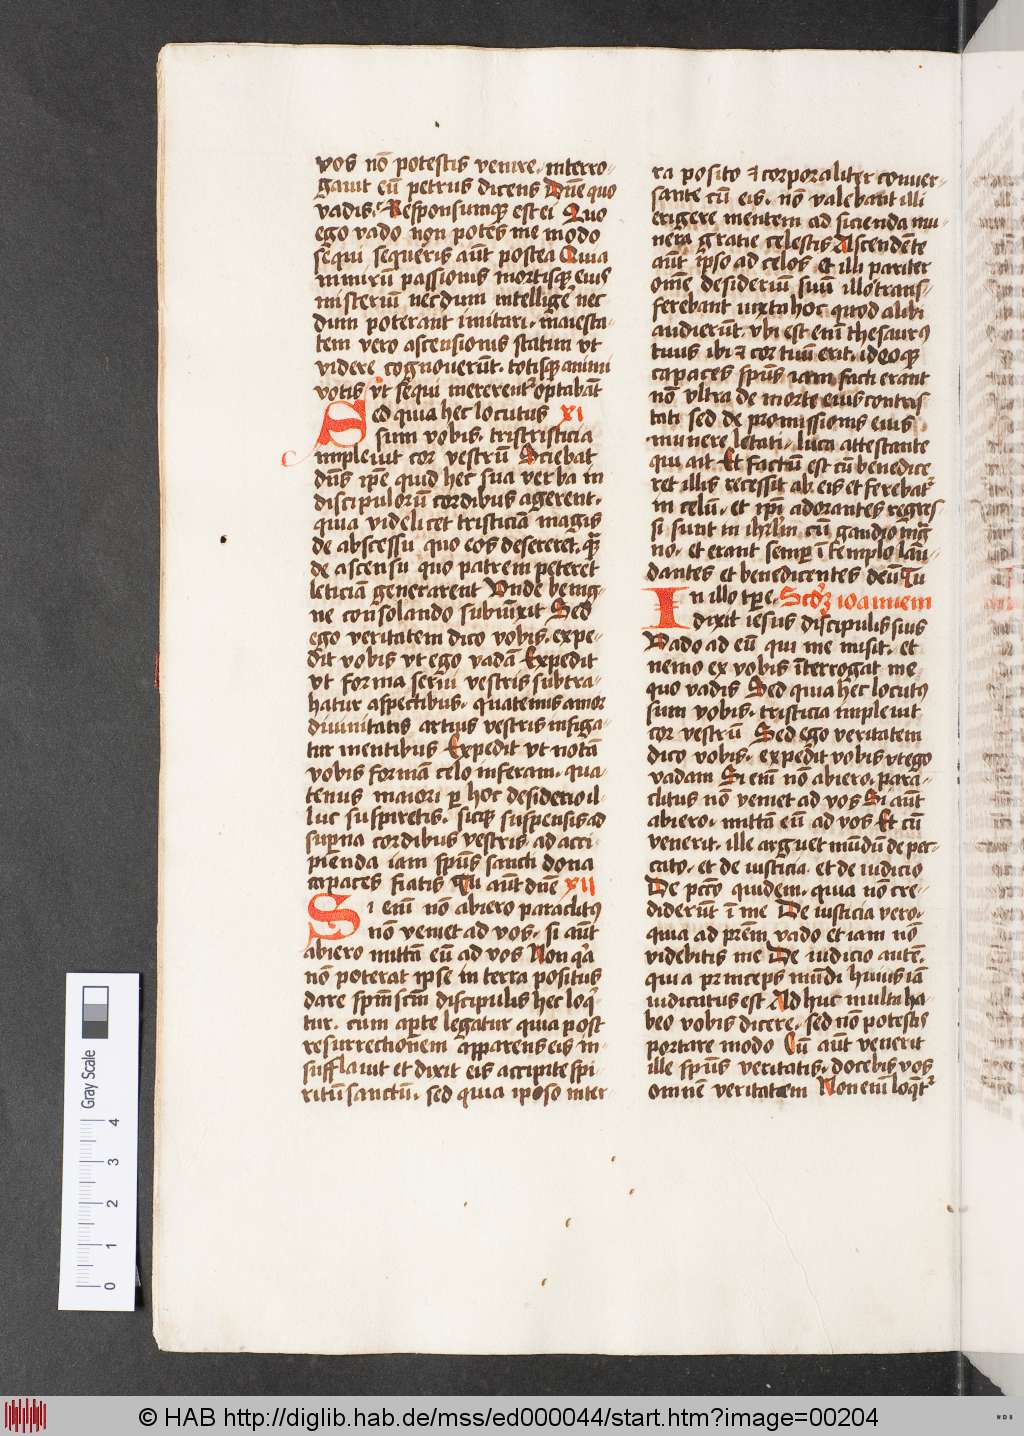 vos nō potestis venire. interro-
gauit eū petrus dicens Dn̄e quo
vadis. Responsumq; est ei Quo
ego vado non potes me modo
sequi sequeris aūt postea Quia
nimirū passionis mortisq; eius
misteriū necdum intelligē nec
dum poterant imitari. maiesta-
tem vero ascensionis statim vt
videre cognouerūt. totisq; animi
votis vt sequi mererent᷑ optabāt
Sed quia hec locutus XI
sum vobis. tristristicia
impleuit cor vestrū Sciebat
dūs ip̄e quid hec sua verba in
discipulorū cordibus agerent.
quia videlicet tristiciā magis
de abscessu quo eos desereret. q̄
de ascensu quo patrem peteret
leticiā generarent Vnde benig-
ne consolando subiūxit Sed
ego veritatem dico vobis. expe-
dit vobis vt ego vadā Expedit
vt forma serui vestris subtra-
hatur aspectibus. quatenus amor
diuinitatis artius vestris infiga-
tur mentibus Expedit vt notā
vobis formā celo inferam. qua-
tenus maiori p̄ hoc desiderio il-
luc suspiretis. sicq; suspensis ad
sup̄na cordibus vestris ad acci-
pienda iam sp̄us sancti dona
capaces fiatis Tu aūt dn̄e XII
Si enī nō abiero paraclitꝰ
nō veniet ad vos. si aūt
abiero mittā eū ad vos Non q̄a
nō poterat ipse in terra positus
dare sp̄m scm̄ discipulis hec loq̄-
tur. cum ap̄te legatur quia post
resurrectionem apparens eis in-
sufflauit et dixit eis accipite spi-
ritū sanctū. sed quia ipso so inter
ra posito ⁊ corporaliter conuer-
sante cū eis. nō valebant illi
erigere mentem ad sicienda mu-
nera gratie celestis Ascendēte
aūt ip̄so ad celos et illi pariter
om̄e desideriū suū illo trans-
ferebant iuxta hoc quod alibi
audierūt. vbi est enī thesaurꝰ
tuus ibi ⁊ cor tuū erit. ideoq;
capaces sp̄us iam facti erant
nō vltra de morte eius contris
tati sed de promissionis eius
munere letati. luca attestante
qui ait Et factū est cū benedice
ret illis recessit ab eis et ferebat᷑
in celū. et ip̄i adorantes regres-
si sunt in ihrl̄m cū gaudio mag̅
no. et erant semp̄ ī templo lau-
dantes et benedicentes deū Tu
In illo tp̄e. Scd̄ꝫ ioannem
dixit iesus discipulis suis
Vado ad eū qui me misit. et
nemo ex vobis īterrogat me-
quo vadis Sed quia hec locutꝰ
sum vobis. tristicia impleuit
cor vestrū Sed ego veritatem
dico vobis. expedit vobis vt ego
vadam Si enī nō abiero. para-
clitus nō veniet ad vos Si aūt
abiero. mittā eū ad vos Et cū
venerit. ille arguet mūdū de pec-
cato. et de iusticia. et de iudicio
De pctō quidem. quia nō cre-
diderūt ī me De iusticia vero.
quia ad prēm vado et iam nō
videbitis me De iudicio autē.
quia princeps mūdi huius iā
iudicatus est Adhuc multa ha-
beo vobis dicere. sed nō potestis
portare modo Cū aūt venerit
ille sp̄us veritatis. docebit vos
omnē veritatem Non enī loq̄t᷑
Gray Scale
0 1 2 3 4
© HAB http://diglib.hab.de/mss/ed000044/start.htm?image=00204